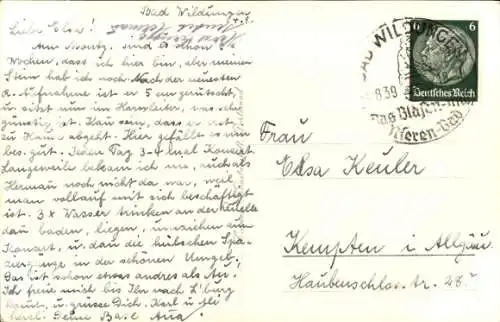 Bad Wildungen
Liebe Elsa!
Am Montag sind es schon
Wochen, dass ich hier bin, aber meinen
Stein hab ich noch. Nach der neuesten
R. Aufnahme ist er 5 cm gerutscht,
u. sitzt nun im Harnleiter, was sehr
günstig ist. Kann sein, dass er erst
zu Hause abgeht. Hier gefällt es mir
bes. gut. Jeden Tag 3-4 mal Konzert
Langeweile bekam ich nie, auch als
Hermann noch nicht da war, weil
man vollauf mit sich beschäftigt
ist. 3x Wasser trinken an der Quelle
dau baden, liegen, umziehen zum
Konzert, u. dau die hübschen Spa-
ziergänge in der schönen Umgeb.
Das ist schon etwas andres als
Ich freue mich bis Ihr nach L'burg
kommt, u. grüsse Dich, Karl u.
herzl. Deine Base
6
Deutsches Reich
BAD WILDUNGEN
8.39
Das Blasen- und
Nieren-Bad
Frau
Elsa Keuler
Kempten i. Allgäu
Haubenschlosstr. 28